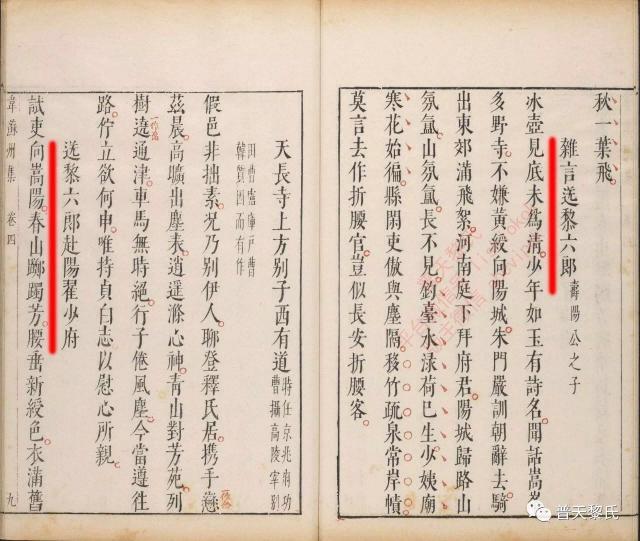 秋一葉飛
雜言送黎六郎 壽陽公之子
冰壺見底未爲清少年如玉有詩名聞話嵩峯
多野寺不嫌黃綬向陽城朱門嚴訓朝辭去騎
出東郊滿飛絮河南庭下拜府君陽城歸路山
氛氳山氛氳長不見釣臺水淥荷已生少姨廟
寒花始徧縣閑吏傲與塵隔移竹疏泉常岸幘
莫言去作折腰官豈似長安折腰客
天長寺上方別子西有道 時任京兆府功
曹攝高陵宰別
田曹盧庫戸曹
韓質因而有作
假邑非拙素況乃別伊人聊登釋氏居攜手戀
茲晨高曠出塵表逍遥滌心神青山對芳苑列
樹遶通津車馬無時絕行子倦風塵今當遵往
路佇立欲何申唯持貞白志以慰心所親
送黎六郎赴陽翟少府
試吏向嵩陽春山躑躅芳腰垂新綬色衣滿舊
韋蘇州集 卷四 九
普天黎氏